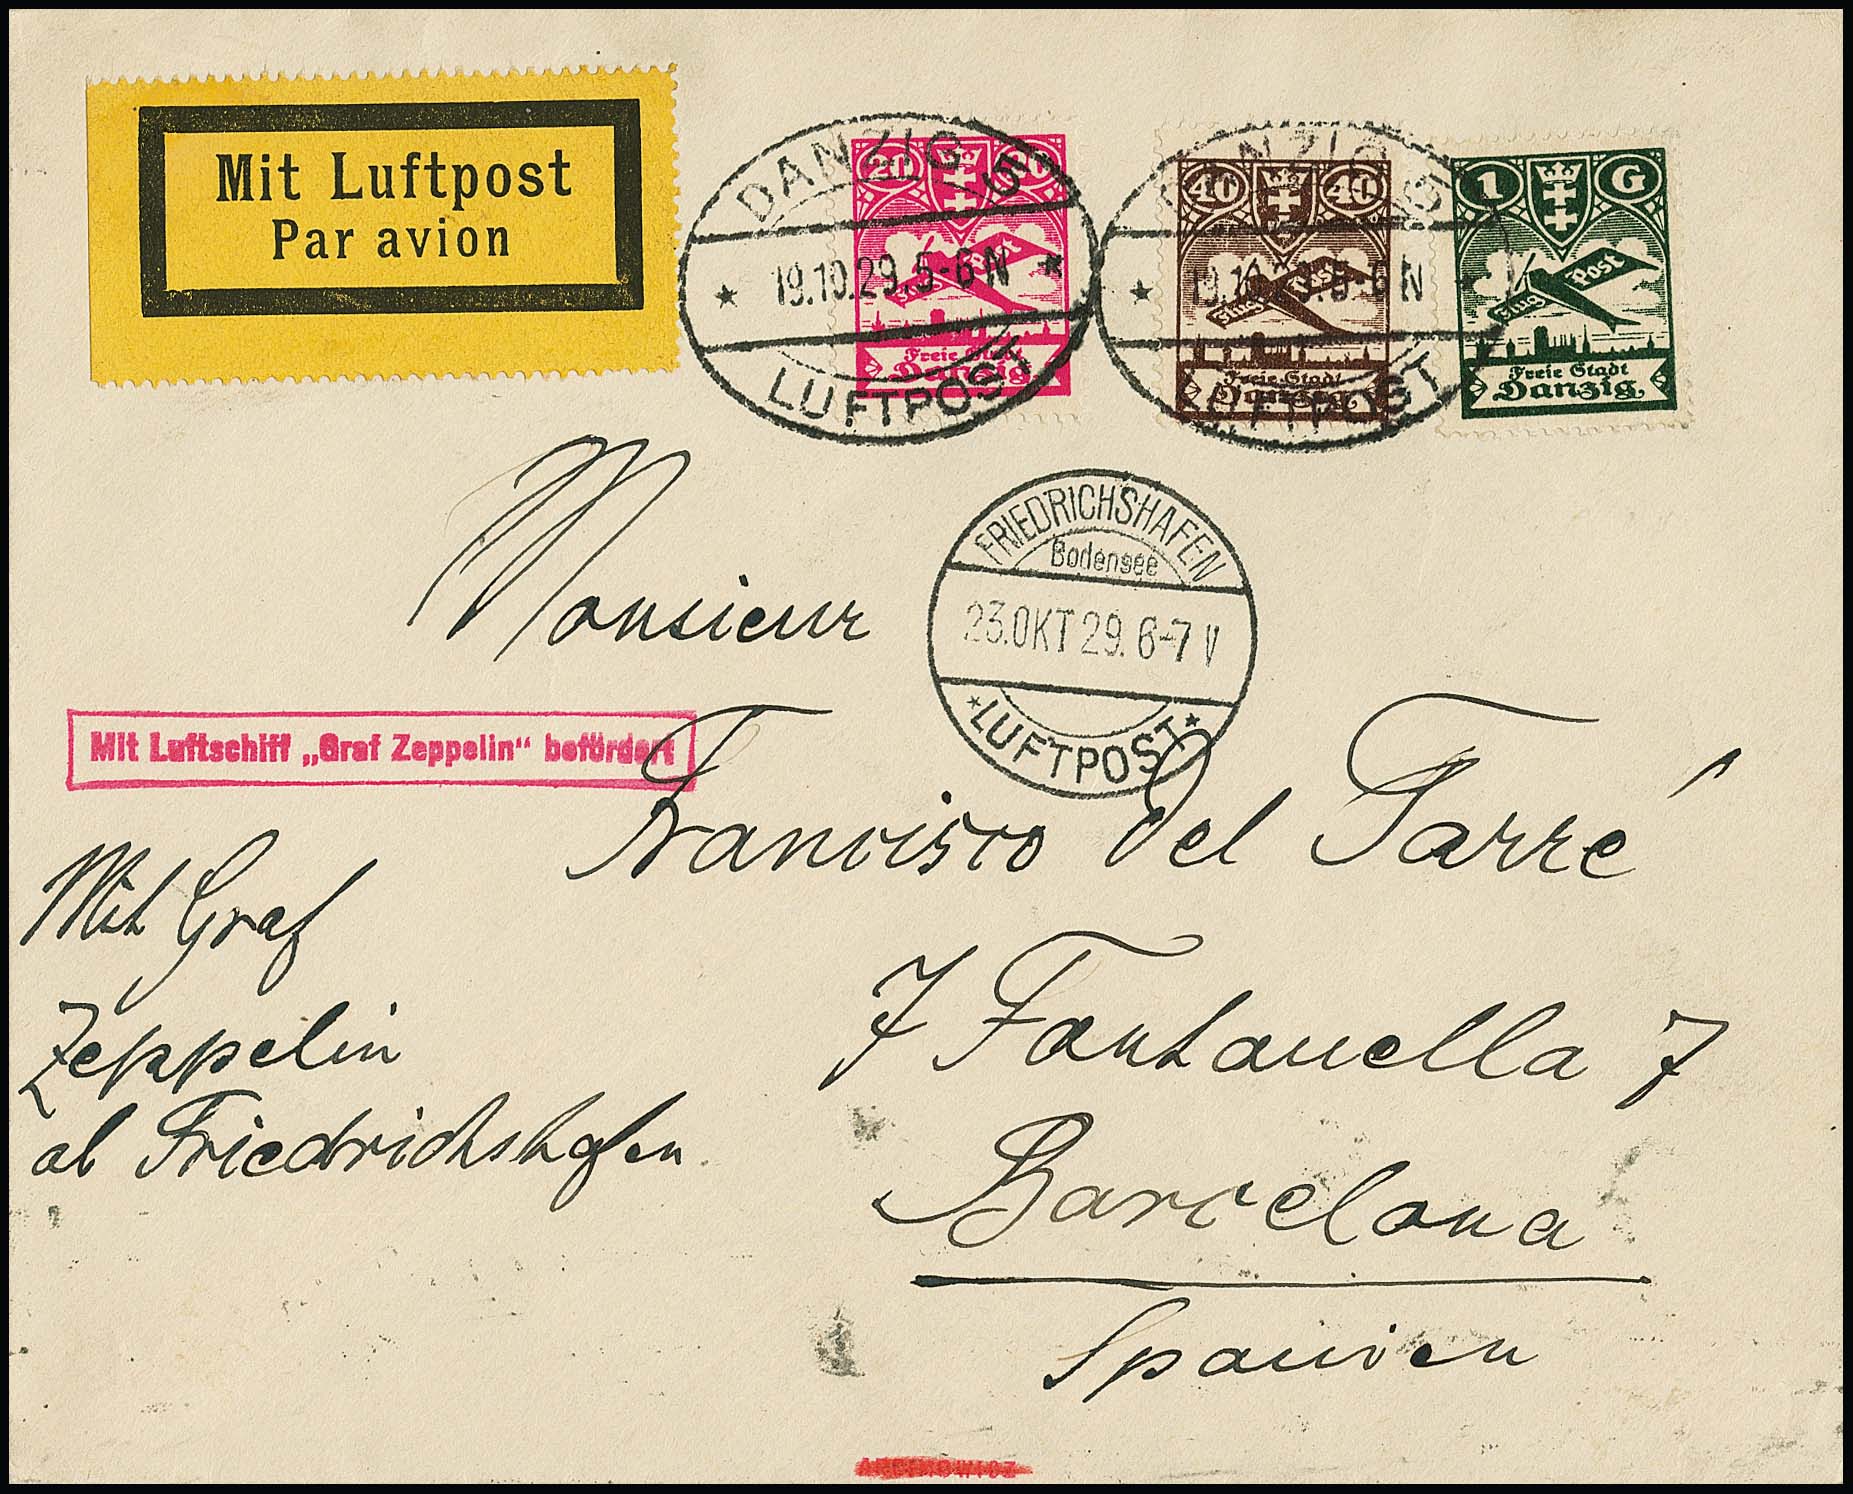 Mit Luftpost
Par avion
DANZIG 5
19.10.29.5-6N
LUFTPOST
20 20
Flug Post
Freie Stadt
Danzig
DANZIG
19.10.29.5-6N
LUFTPOST
40 40
Flug Post
Freie Stadt
Danzig
1 G
Flug Post
Freie Stadt
Danzig
FRIEDRICHSHAFEN
Bodensee
23.OKT 29. 6-7 V
LUFTPOST
Monsieur
Mit Luftschiff „Graf Zeppelin“ befördert
Francisco del Tarré
Mit Graf
Zeppelin
ab Friedrichshafen
7 Fontanella 7
Barcelona
Spanien